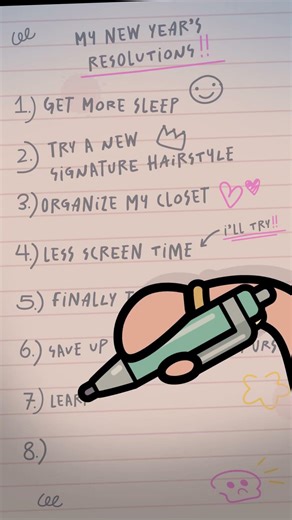 MY NEW YEAR'S
RESOLUTIONS!!
1.) GET MORE SLEEP
2.) TRY A NEW
SIGNATURE HAIRSTYLE
3.) ORGANIZE MY CLOSET
4.) LESS SCREEN TIME
I'LL TRY!!
5.) FINALLY
6.) SAVE UP
7.)
8.)